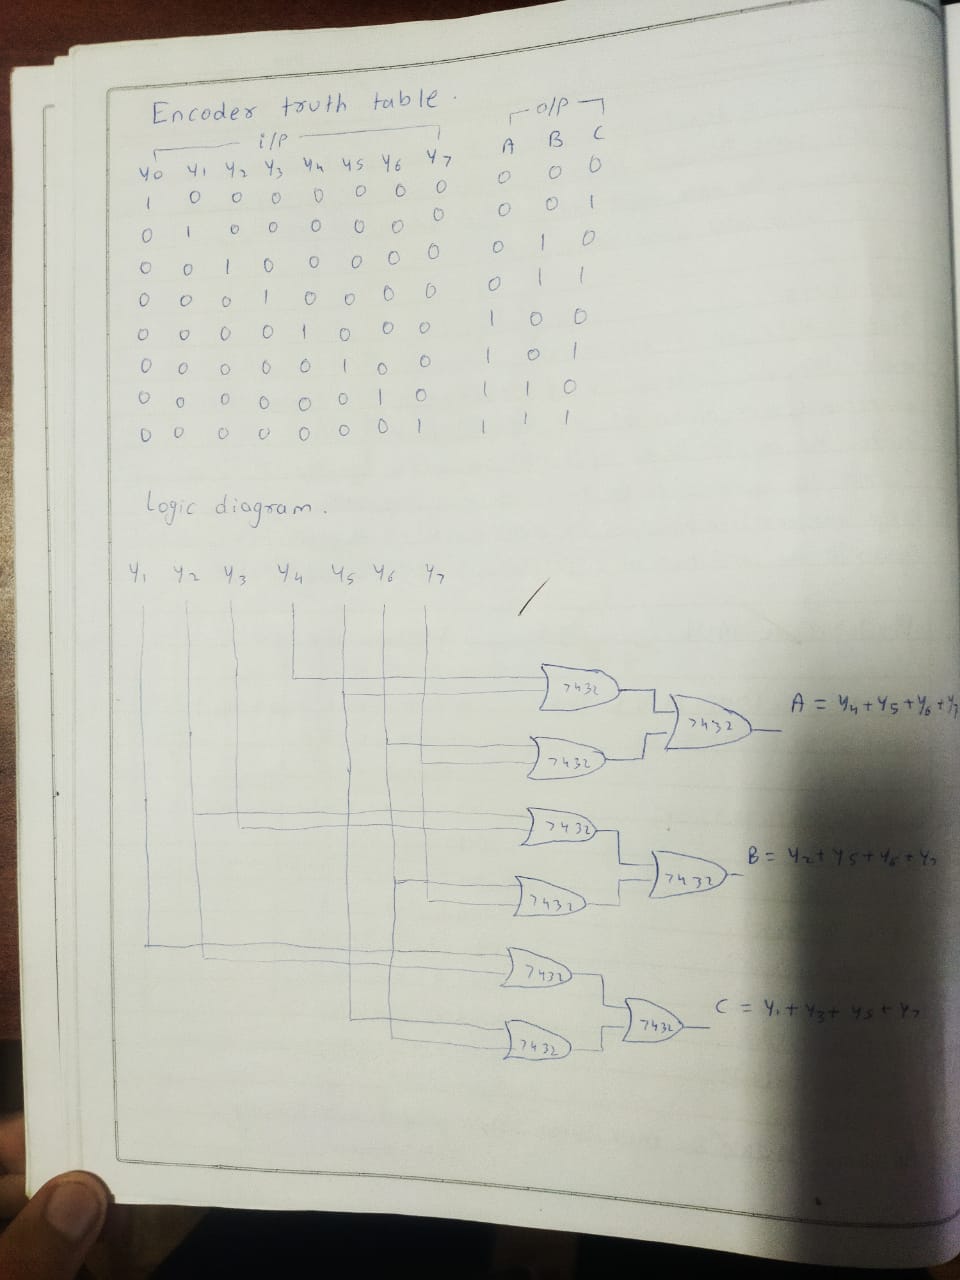 Encoder truth table.
i/p o/p
Y0 Y1 Y2 Y3 Y4 Y5 Y6 Y7 A B C
1 0 0 0 0 0 0 0 0 0 0
0 1 0 0 0 0 0 0 0 0 1
0 0 1 0 0 0 0 0 0 1 0
0 0 0 1 0 0 0 0 0 1 1
0 0 0 0 1 0 0 0 1 0 0
0 0 0 0 0 1 0 0 1 0 1
0 0 0 0 0 0 1 0 1 1 0
0 0 0 0 0 0 0 1 1 1 1
Logic diagram.
Y1 Y2 Y3 Y4 Y5 Y6 Y7
7432
7432
A = Y4+Y5+Y6+Y7
7432
7432
7432
B = Y2+Y5+Y6+Y7
7432
7432
7432
C = Y1+Y3+Y5+Y7
7432